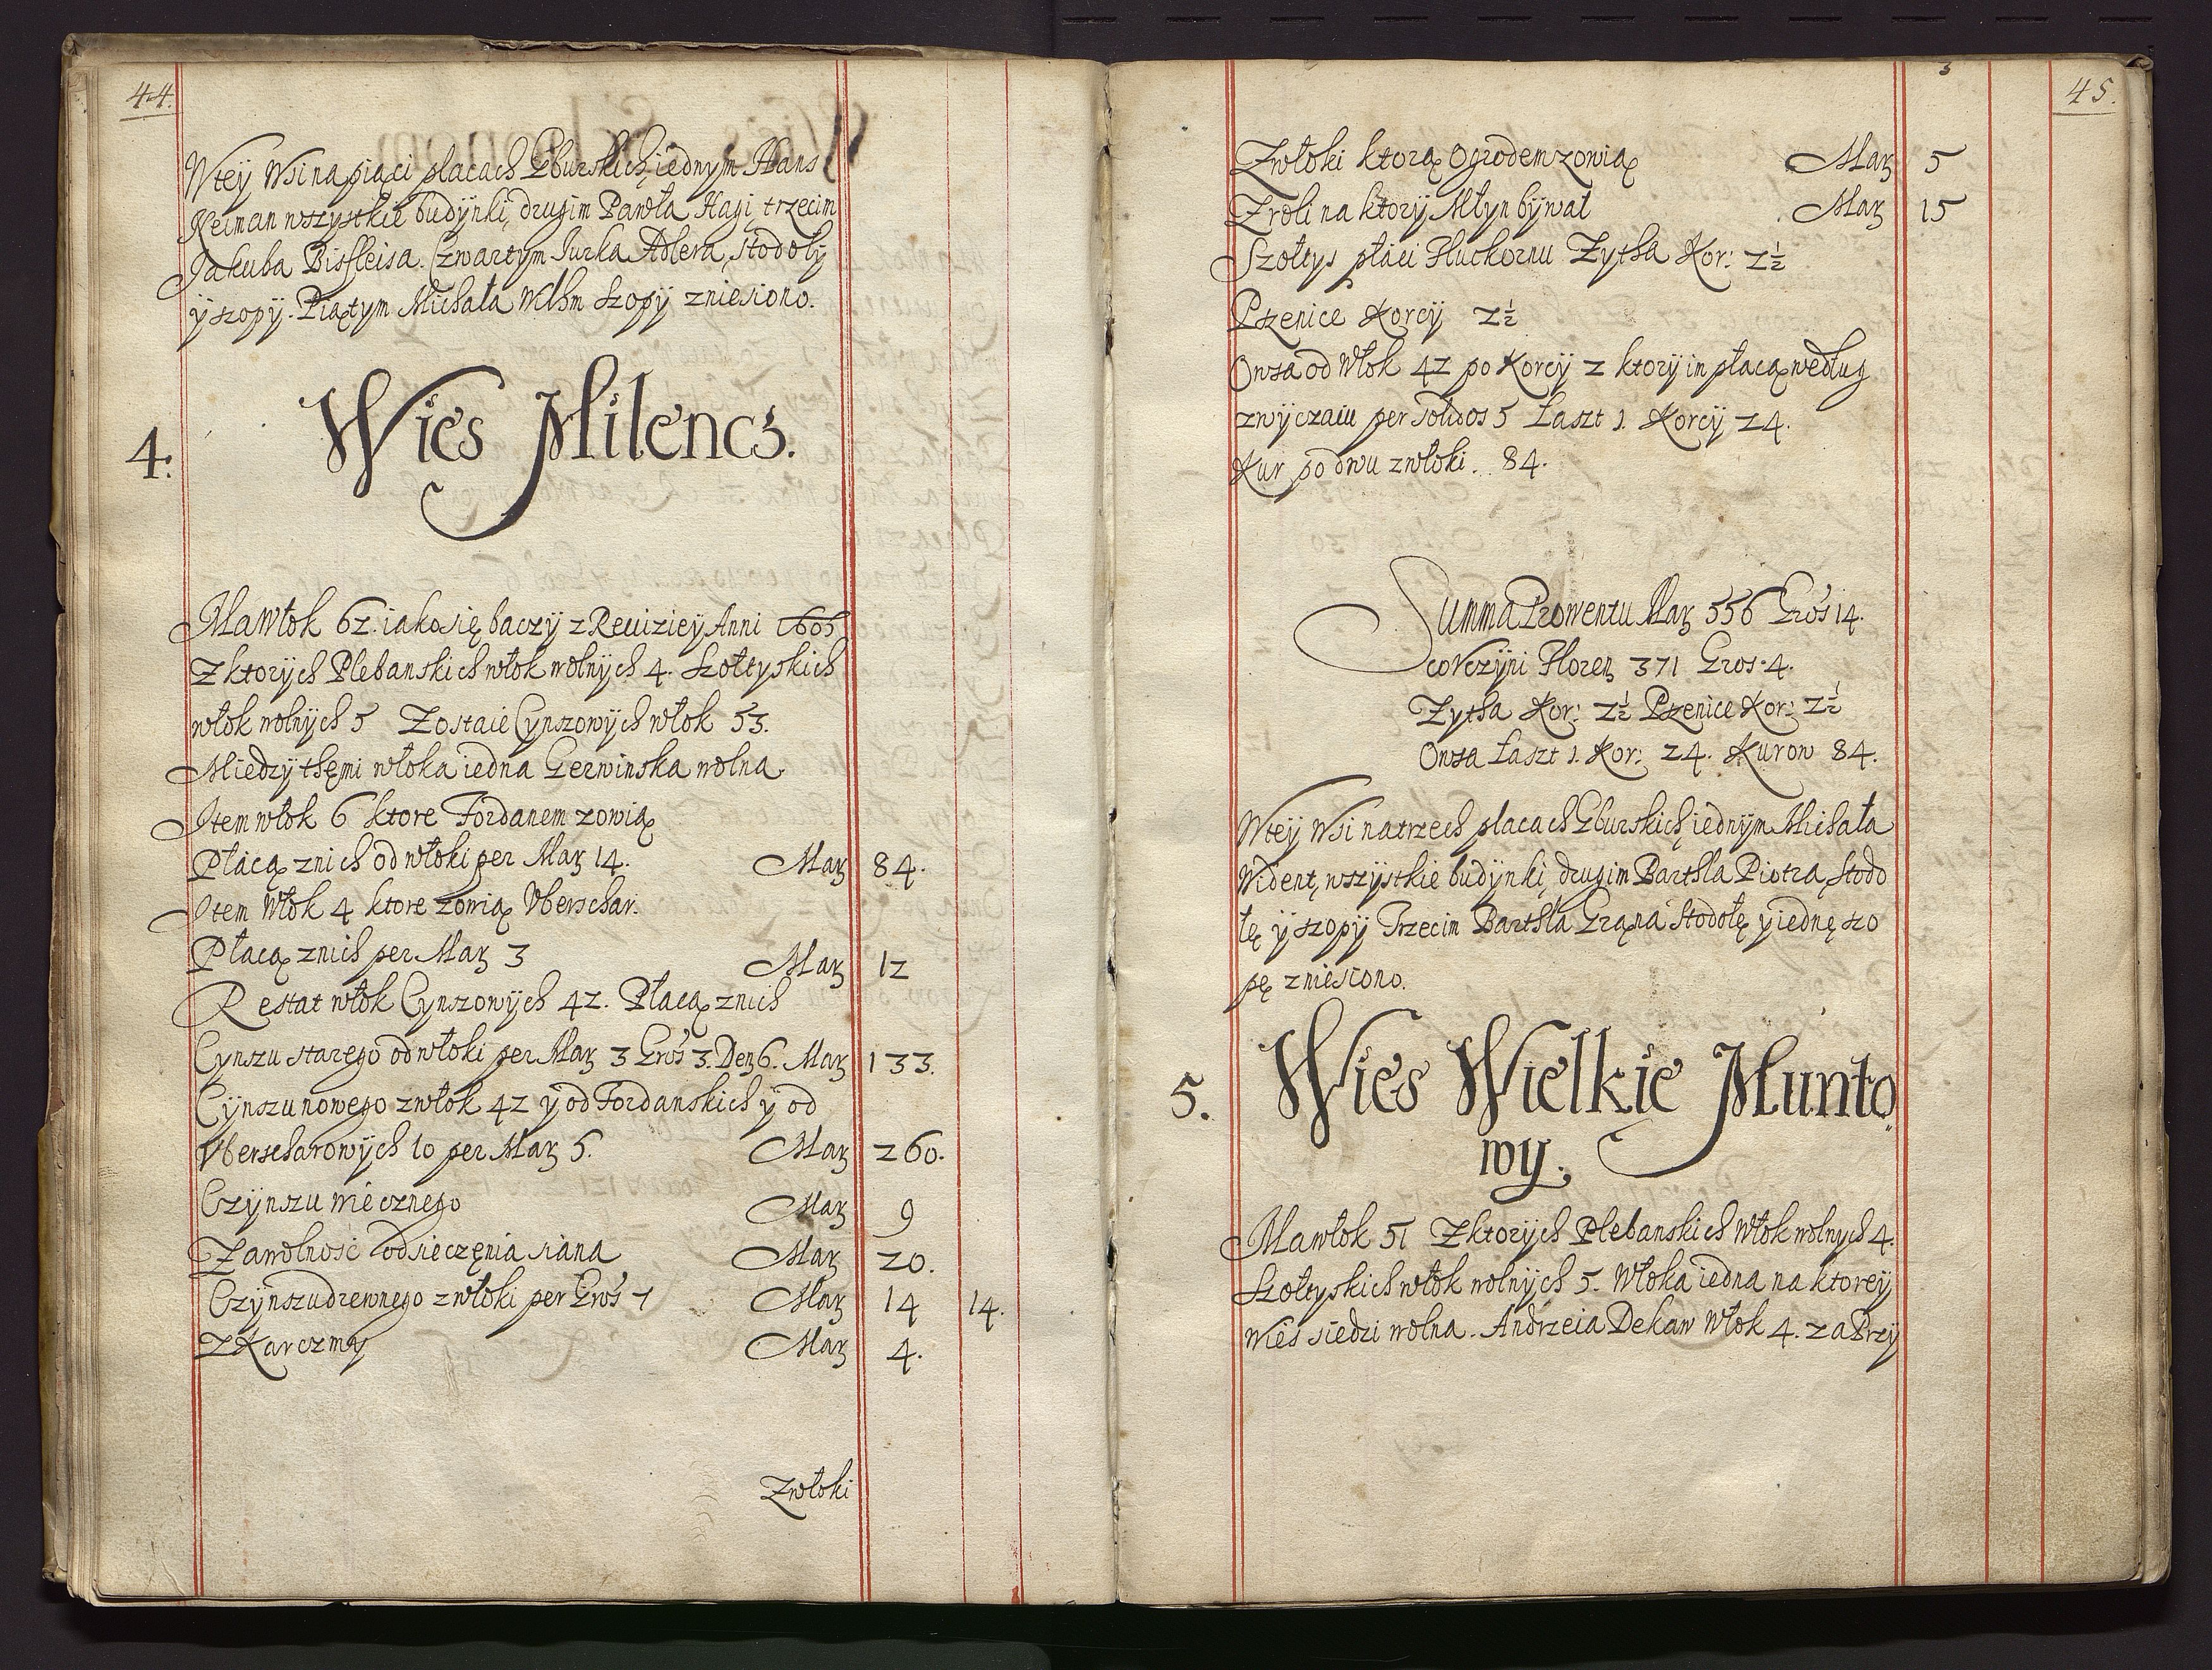 44.
Wtey Wsi na piąci placach Gburskich, iednym Hans
Neiman wszystkie budynki, drugim Pawła Hagi, trzecim
Jakuba Bisfleisa. Czwartym Jurka Adlera, stodoły
ÿ szopÿ. Piątym Michała Wilhm szopÿ zniesiono.
4. Wies Milencz.
Ma włok 62. iako się baczÿ z Rewizieÿ Anni 1605
Z ktorÿch Plebanskich włok wolnÿch 4. Szołtyskich
włok wolnÿch 5 Zostaie Cynszowÿch włok 53.
Miedzÿ themi włoka iedna Gerwinska wolna.
Item włok 6 ktore Fordanem zowią
Płacą znich od włoki per Marz 14. Marz 84.
Item Włok 4 ktore zowią Vberschar.
Płacą znich per Marz 3 Marz 12
Restat włok Cynszowÿch 42. Płacą znich
Cynszu starego od włoki per Marz 3 Gros 3. Den 6. Marz 133.
Cÿnszu nowego z włok 42 ÿ od Fordanskich ÿ od
Vberscharowÿch 10 per Marz 5. Marz 260.
Czÿnszu wiecznego Marz 9
Za wolność od sieczęnia siana Marz 20.
Czÿnszu drzewnego z włoki per Gros 7 Marz 14 14.
Z Karczmÿ Marz 4.
Zwłoki
45.
Zwłoki ktorą Ogrodem zowią Marz 5
Z roli na ktorÿ Młyn bÿwał Marz 15
Szołtys płaci Pluchkornu Zytha Kor: 2½
Pszenice Korcÿ 2½
Owsa od Włok 42 po Korcÿ 2 ktorÿ im płacą według
zwÿczaiu per solidos 5 Łaszt 1. Korcÿ 24.
Kur po dwu z włoki. 84.
Summa Prowentu Marz 556 Gros 14.
co vczÿni Floren 371 Gros. 4.
Zytha Kor: 2½ Pszenice Kor: 2½
Owsa Łaszt 1. Kor: 24. Kurow 84.
Wteÿ Wsi na trzech placach Gburskich, iednÿm Michała
Wident, wszÿstkie budÿnki, drugim Barthla Piotra, Stodo
łę ÿ szopÿ Trzecim Barthla Grąna Stodołę y iednę szo
pę zniesiono.
5. Wies Wielkie Munto
wÿ.
Ma włok 51 Z ktorÿch Plebanskich Włok wolnych 4.
Szołtyskich włok wolnÿch 5. Włoka iedna na ktoreÿ
wies siedzi wolna. Andrzeia Dekaw Włok 4. za Przÿ